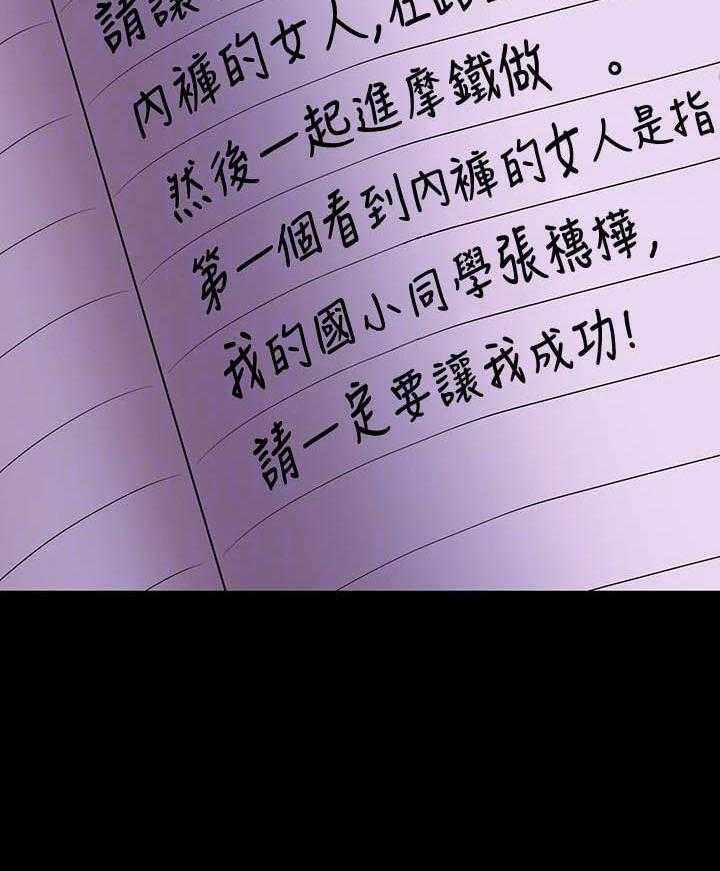 請讓
內褲的女人,在路
然後一起進摩鐵做 。
第一個看到內褲的女人是指
我的國小同學張穗樺,
請一定要讓我成功!